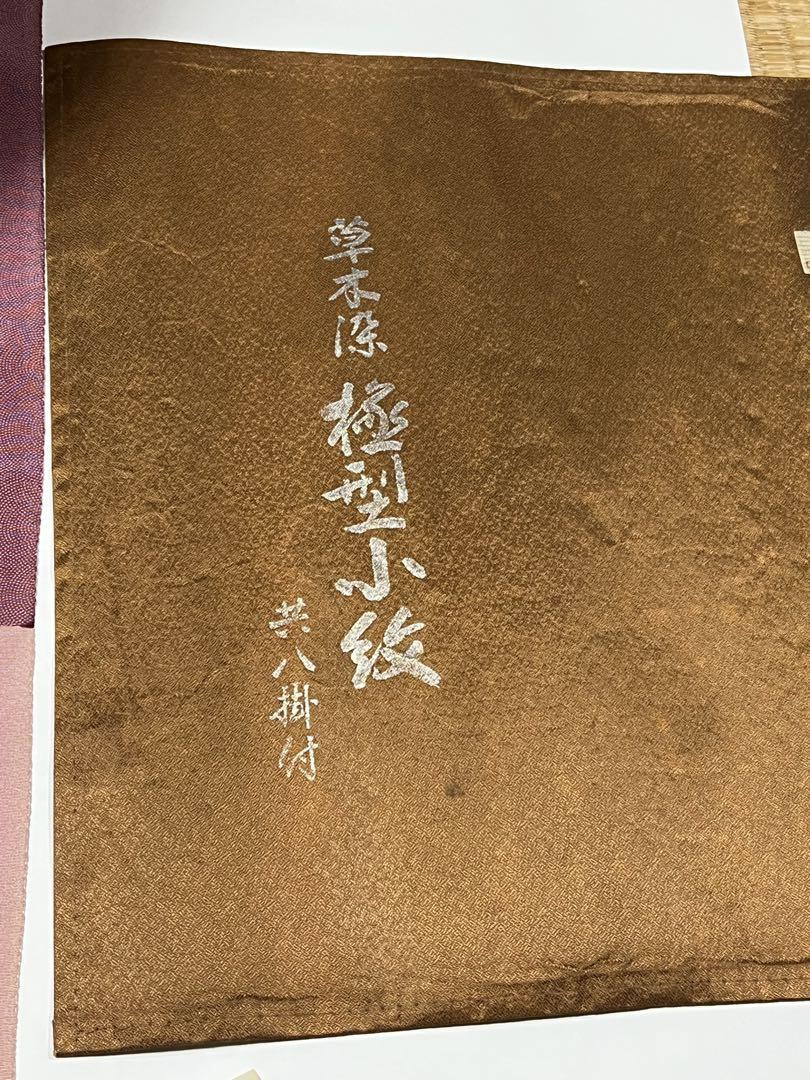 草木染 極型小紋
共八掛付